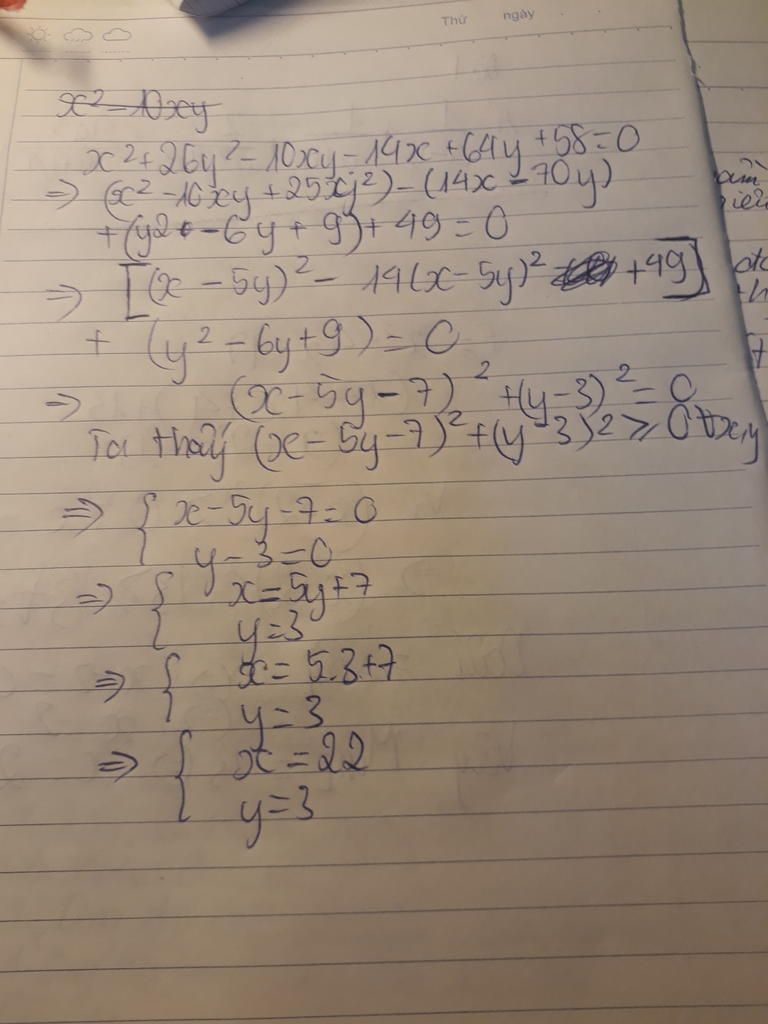 Thứ ngày
x² - 10xy
x² + 26y² - 10xy - 14x + 64y + 58 = 0
=> (x² - 10xy + 25xy²) - (14x - 70y)
+ (y² - 6y + 9) + 49 = 0
=> [(x - 5y)² - 14(x - 5y)² + 49]
+ (y² - 6y + 9) = 0
=> (x - 5y - 7)² + (y - 3)² = 0
Ta thấy (x - 5y - 7)² + (y - 3)² ≥ 0 ∀x,y
=> { x - 5y - 7 = 0
y - 3 = 0
=> { x = 5y + 7
y = 3
=> { x = 5.3 + 7
y = 3
=> { x = 22
y = 3